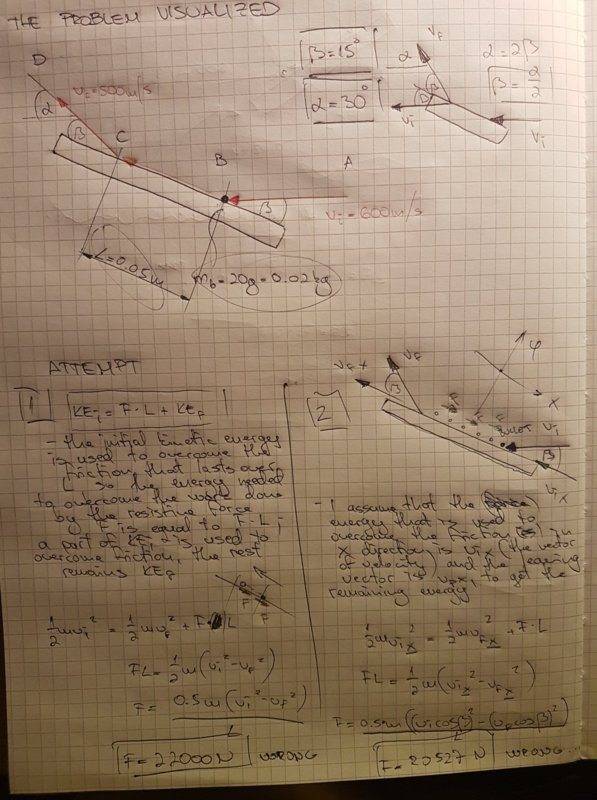 THE PROBLEM VISUALIZED
D
v = 500 m/s
α
β
C
B
A
β
v = 600 m/s
L = 0.05 m
m_b = 20g = 0.02 kg
β = 15°
α = 30°
v_f
α
β β
v_i
v_i
α = 2β
β = α/2
ATTEMPT
1
KE_i = F · L + KE_f
- the initial kinetic energy
is used to overcome the
friction, that lasts over
L, so the energy needed
to overcome the work done
by the resistive force
F is equal to F·L;
a part of KE is used to
overcome friction, the rest
remains KE_f
F F
1/2 m v_i² = 1/2 m v_f² + F · L
FL = 1/2 m (v_i² - v_f²)
F = 0.5 m (v_i² - v_f²) / L
F = 22000 N WRONG
2
v_f x
v_f
β
φ
x
v_i
β
v_i x
- I assume that the
energy that is used to
overcome the friction in
x direction is v_ix (the vector
of velocity) and the leaving
vector is v_fx, to get the
remaining energy
1/2 m v_ix² = 1/2 m v_fx² + F · L
FL = 1/2 m (v_ix² - v_fx²)
F = 0.5 m ((v_i cos β)² - (v_f cos β)²) / L
F = 20527 N WRONG